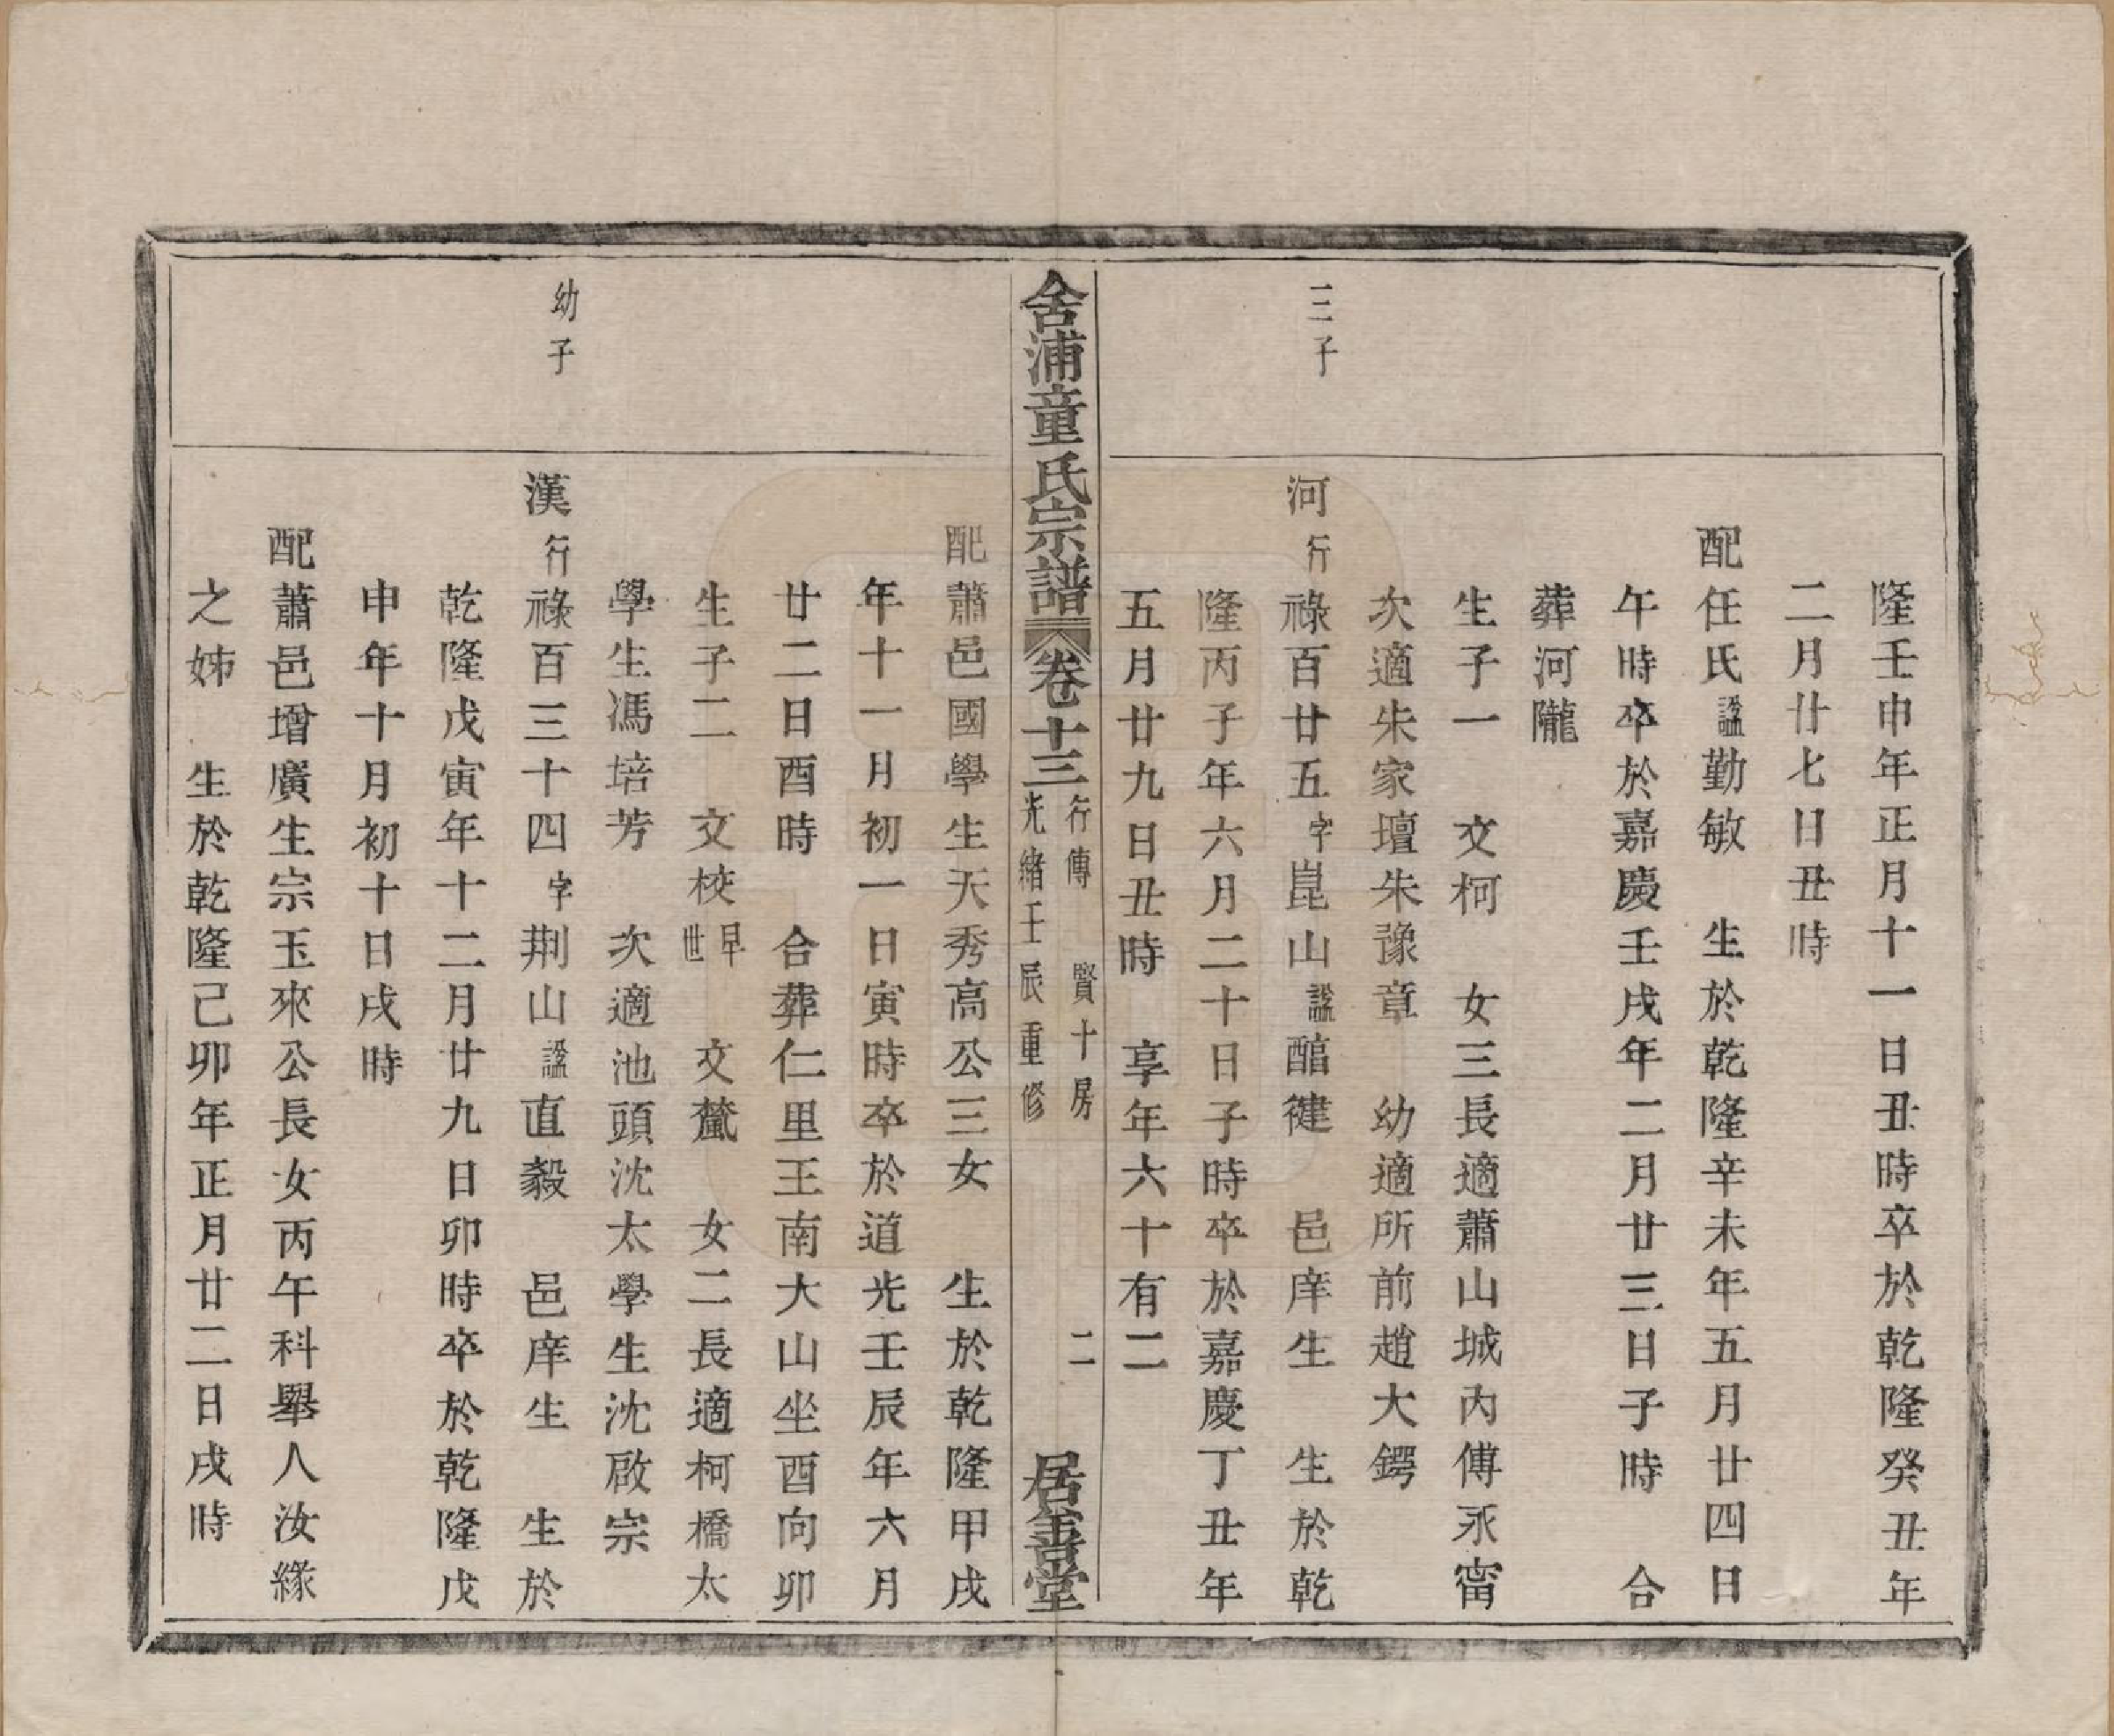 隆壬申年正月十一日丑時卒於乾隆癸丑年
二月廿七日丑時
配任氏諡勤敏　生於乾隆辛未年五月廿四日
午時卒於嘉慶壬戌年二月廿三日子時　合
葬河隴
生子一　文柯　女三長適蕭山城內傅永甯
次適朱家壇朱豫章　幼適所前趙大鍔
三子
河行祿百廿五字崑山諡醕健　邑庠生　生於乾
隆丙子年六月二十日子時卒於嘉慶丁丑年
五月廿九日丑時　享年六十有二
舍浦童氏宗譜 卷十三 行傳 賢十房 光緒壬辰重修 二 居善堂
配蕭邑國學生天秀高公三女　生於乾隆甲戌
年十一月初一日寅時卒於道光壬辰年六月
廿二日酉時　合葬仁里王南大山坐酉向卯
生子二　文校早世　文　女二長適柯橋太
學生馮培芳　次適池頭沈太學生沈啟宗
幼子
漢行祿百三十四字荆山諡直毅　邑庠生　生於
乾隆戊寅年十二月廿九日卯時卒於乾隆戊
申年十月初十日戌時
配蕭邑增廣生宗玉來公長女丙午科舉人汝緣
之姊　生於乾隆己卯年正月廿二日戌時